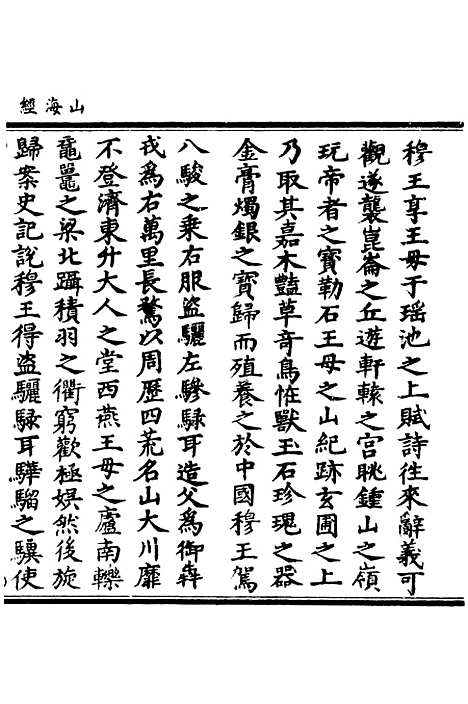 山海經
穆王享王母于瑶池之上賦詩往來辭義可
觀遂襲崑崙之丘遊軒轅之宫眺鍾山之嶺
玩帝者之寳勒石王母之山紀跡玄圃之上
乃取其嘉木豔草奇鳥恠獸玉石珍瑰之器
金膏燭銀之寳歸而殖養之於中國穆王駕
八駿之乗右服盜驪左驂騄耳造父爲御犇
戎爲右萬里長騖以周歷四荒名山大川靡
不登濟東升大人之堂西燕王母之廬南轢
黿鼉之梁北躡積羽之衢窮歡極娯然後旋
歸案史記說穆王得盜驪騄耳驊騮之驥使